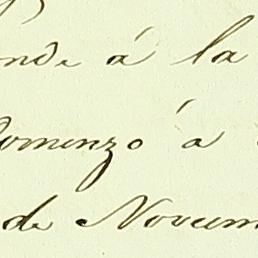 nde á la
omenzó á
de Novem